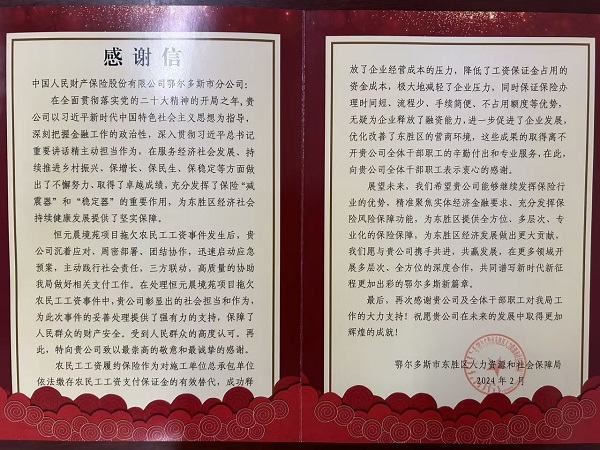 感谢信
中国人民财产保险股份有限公司鄂尔多斯市分公司：
在全面贯彻落实党的二十大精神的开局之年，贵
公司以习近平新时代中国特色社会主义思想为指导，
深刻把握金融工作的政治性，深入贯彻习近平总书记
重要讲话精主动担当作为，在服务经济社会发展、持
续推进乡村振兴、保增长、保民生、保稳定等方面做
出了不懈努力、取得了卓越成绩，充分发挥了保险“减
震器”和“稳定器”的重要作用，为东胜区经济社会
持续健康发展提供了坚实保障。
恒元晨境苑项目拖欠农民工工资事件发生后，贵
公司沉着应对、周密部署、团结协作，迅速启动应急
预案，主动践行社会责任，三方联动，高质量的协助
我局做好相关支付工作。在处理恒元晨境苑项目拖欠
农民工工资事件中，贵公司彰显出的社会担当和作为，
为此次事件的妥善处理提供了强有力的支持，保障了
人民群众的财产安全。受到人民群众的高度认可。再
此，特向贵公司致以最崇高的敬意和最诚挚的感谢。
农民工工资履约保险作为对施工单位总承包单位
依法缴存农民工工资支付保证金的有效替代，成功释
放了企业经营成本的压力，降低了工资保证金占用的
资金成本，极大地减轻了企业压力，同时保证保险办
理时间短、流程少、手续简便、不占用额度等优势，
无疑为企业释放了融资能力，进一步促进了企业发展，
优化改善了东胜区的营商环境，这些成果的取得离不
开贵公司全体干部职工的辛勤付出和专业服务，在此，
向贵公司全体干部职工表示衷心的感谢。
展望未来，我们希望贵公司能够继续发挥保险行
业的优势，精准聚焦实体经济金融要求、充分发挥保
险风险保障功能，为东胜区提供全方位、多层次、专
业化的保险保障，为东胜区经济发展做出更大贡献，
我们愿与贵公司携手共进，共赢发展，在更多领域开
展多层次、全方位的深度合作，共同谱写新时代新征
程更加出彩的鄂尔多斯新篇章。
最后，再次感谢贵公司及全体干部职工对我局工
作的大力支持！祝愿贵公司在未来的发展中取得更加
辉煌的成就！
鄂尔多斯市东胜区人力资源和社会保障局
2024年2月